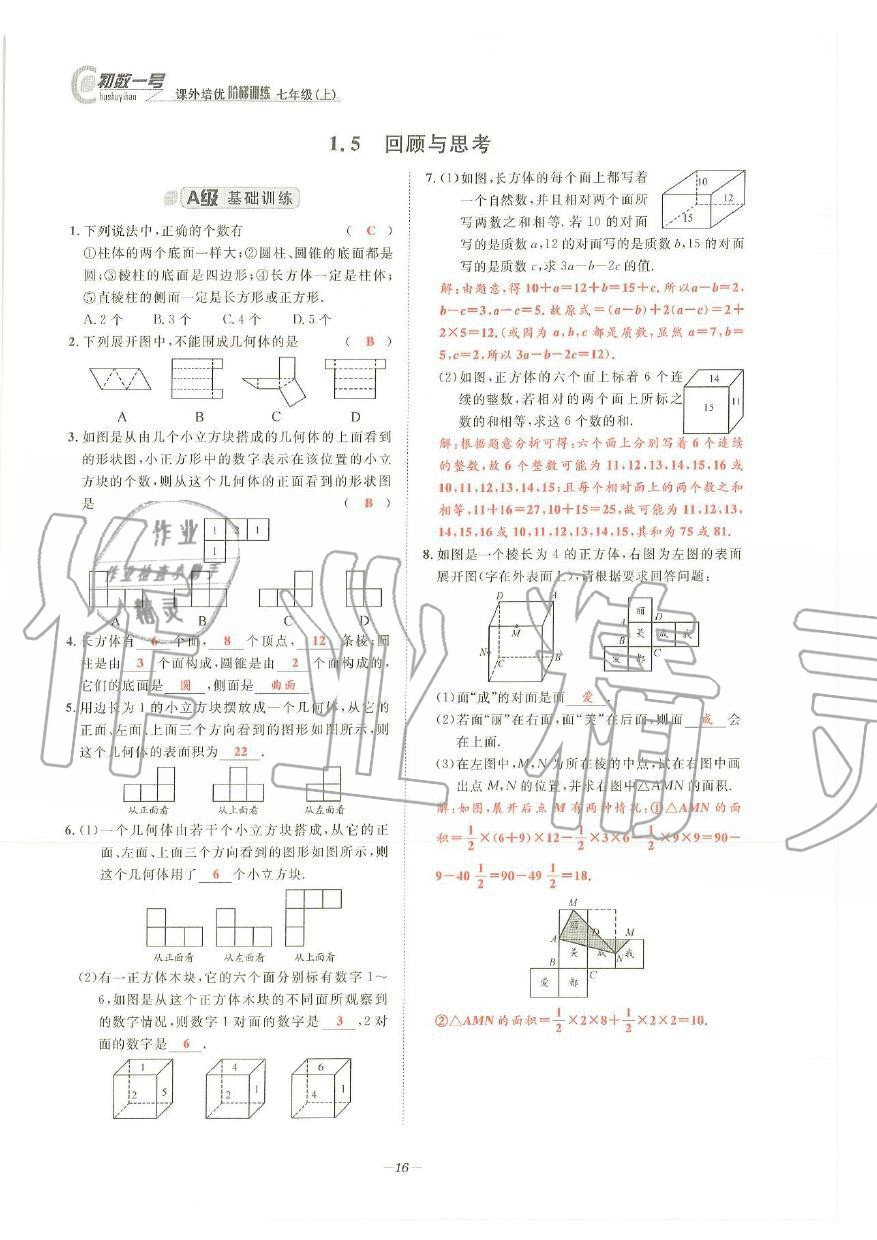 初数一号
chushuyihao
课外培优 阶梯训练 七年级(上)
1.5 回顾与思考
A级 基础训练
1.下列说法中,正确的个数有 ( C )
①柱体的两个底面一样大;②圆柱、圆锥的底面都是
圆;③棱柱的底面是四边形;④长方体一定是柱体;
⑤直棱柱的侧面一定是长方形或正方形.
A.2个 B.3个 C.4个 D.5个
2.下列展开图中,不能围成几何体的是 ( B )
A B C D
3.如图是从由几个小立方块搭成的几何体的上面看到
的形状图,小正方形中的数字表示在该位置的小立
方块的个数,则从这个几何体的正面看到的形状图
是 ( B )
1 2 1
1
A B C D
4.长方体有 6 个面, 8 个顶点, 12 条棱;圆
柱是由 3 个面构成,圆锥是由 2 个面构成的,
它们的底面是 圆 ,侧面是 曲面 .
5.用边长为1的小立方块摆放成一个几何体,从它的
正面、左面、上面三个方向看到的图形如图所示,则
这个几何体的表面积为 22 .
从正面看 从上面看 从左面看
6.(1)一个几何体由若干个小立方块搭成,从它的正
面、左面、上面三个方向看到的图形如图所示,则
这个几何体用了 6 个小立方块.
从正面看 从左面看 从上面看
(2)有一正方体木块,它的六个面分别标有数字1~
6,如图是从这个正方体木块的不同面所观察到
的数字情况,则数字1对面的数字是 3 ,2对
面的数字是 6 .
1 4 6
2 5 2 1 4 1
7.(1)如图,长方体的每个面上都写着
一个自然数,并且相对两个面所
写两数之和相等.若10的对面
写的是质数a,12的对面写的是质数b,15的对面
写的是质数c,求3a-b-2c的值.
10
12
15
解:由题意,得10+a=12+b=15+c.所以a-b=2,
b-c=3,a-c=5.故原式=(a-b)+2(a-c)=2+
2×5=12.(或因为a,b,c都是质数,显然a=7,b=
5,c=2,所以3a-b-2c=12).
(2)如图,正方体的六个面上标着6个连
续的整数,若相对的两个面上所标之
数的和相等,求这6个数的和.
14
15 11
解:根据题意分析可得:六个面上分别写着6个连续
的整数,故6个整数可能为11,12,13,14,15,16或
10,11,12,13,14,15;且每个相对面上的两个数之和
相等,11+16=27,10+15=25,故可能为11,12,13,
14,15,16或10,11,12,13,14,15,其和为75或81.
8.如图是一个棱长为4的正方体,右图为左图的表面
展开图(字在外表面上),请根据要求回答问题:
D A
M
N
C B
丽
A D
美 成 我
B C
爱 都
(1)面“成”的对面是面 爱 .
(2)若面“丽”在右面,面“美”在后面,则面 成 会
在上面.
(3)在左图中,M,N为所在棱的中点,试在右图中画
出点M,N的位置,并求右图中△AMN的面积.
解:如图,展开后点M有两种情况:①△AMN的面
积=1/2×(6+9)×12-1/2×3×6-1/2×9×9=90-
9-40 1/2=90-49 1/2=18.
M
丽
A D M
美 成 我
N
B C
爱 都
②△AMN的面积=1/2×2×8+1/2×2×2=10.
—16—
作业精灵
作业
作业检查小助手
精灵